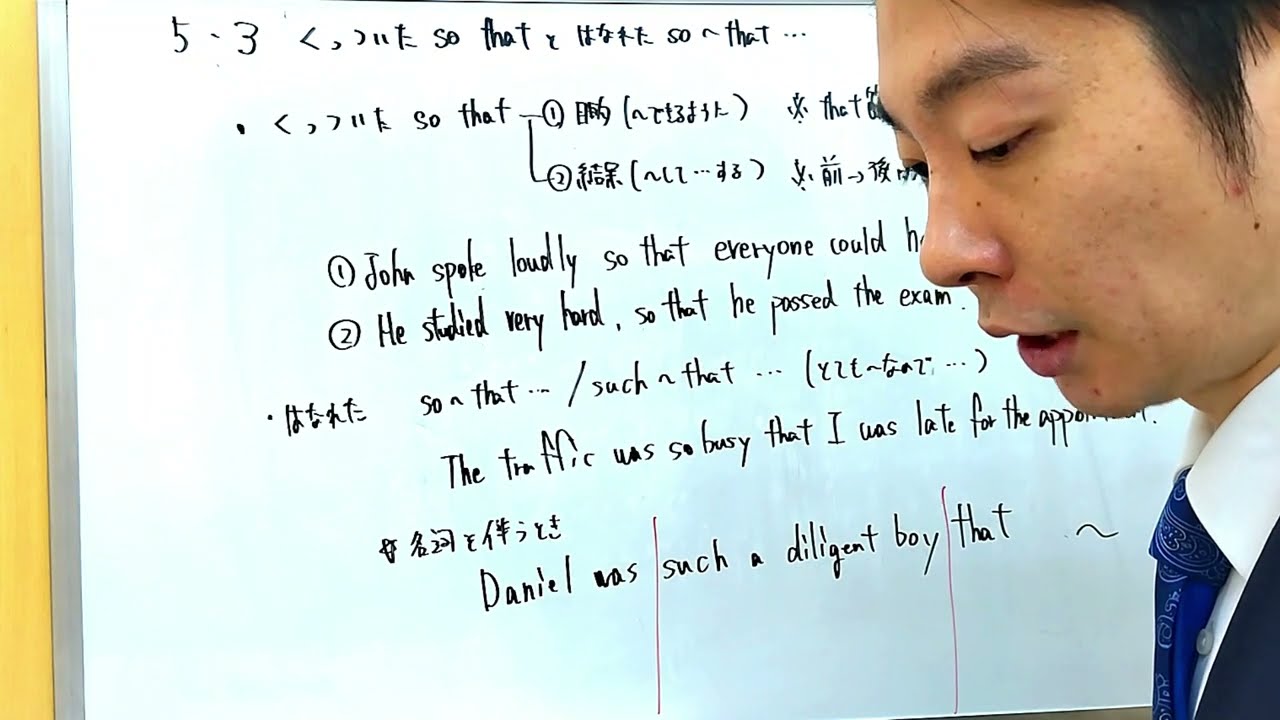 5・3 くっついた so that と はなれた so~that …
・くっついた so that ①目的(~できるように) ※ that節
②結果(~して…する) ※前→後
① John spoke loudly so that everyone could
② He studied very hard, so that he passed the exam.
・はなれた so~that … / such~that … (とても~なので…)
The traffic was so busy that I was late for the appointment.
名詞を伴うとき
Daniel was such a diligent boy that ~